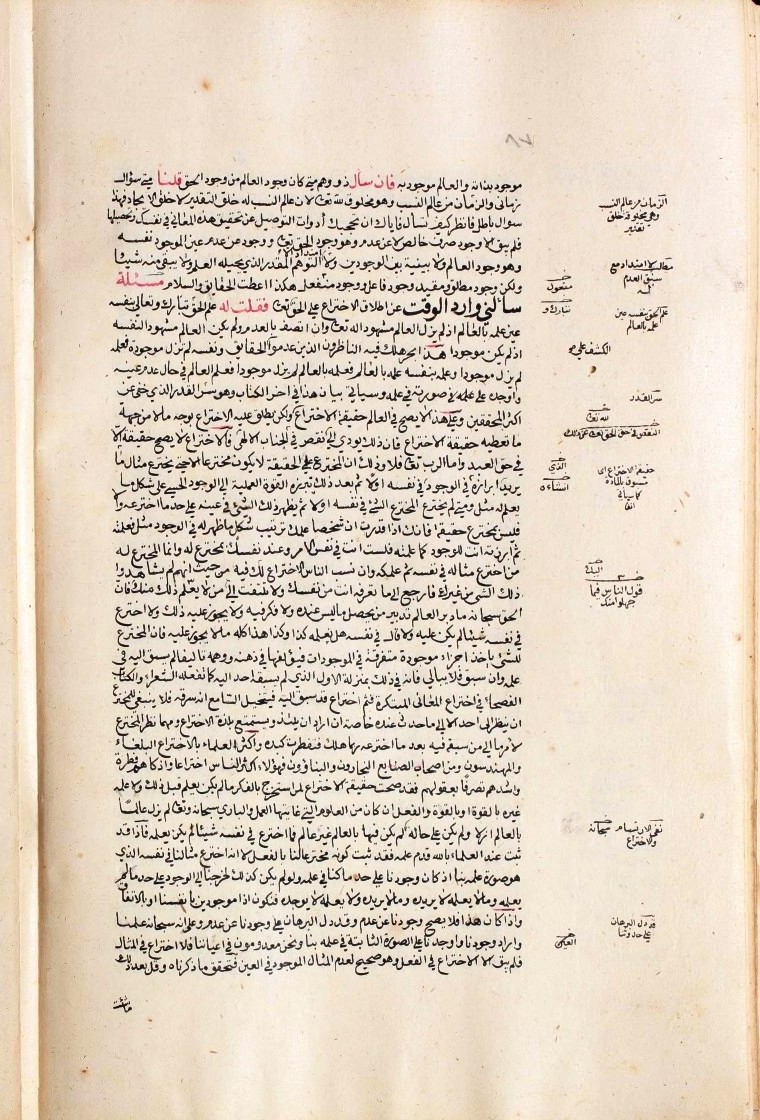 موجود بذاته والعالم موجود به فان سأل ذو وهم متى كان وجود العالم من وجود الحق قلنا متى سؤال
زمانى والزمان من عالم النسب وهو مخلوق لله تعالى لان عالم النسب له خلق التقدير لا خلق الايجاد فهذا
سوال باطل فانظر كيف تسأل فاياك ان تحجبك أدوات التوصيل عن تحقيق هذه المعانى فى نفسك وتحصيلها
فلم يبق الا وجود صرف خالص لا عن عدم وهو وجود الحق تعالى ووجود عن عدم عين الموجود نفسه
وهو وجود العالم ولا بينية بين الوجودين ولا امتداد الا التوهم المقدر الذى يحيله العلم ولا يبقى منه شيئا
ولكن وجود مطلق ومقيد وجود فاعل وجود منفعل هكذا اعطت الحقائق والسلام مسئلة
سألنى وارد الوقت عن اطلاق الاختراع على الحق تعالى فقلت له علم الحق تبارك وتعالى بنفسه
عين علمه بالعالم اذ لم يزل العالم مشهودا له تعالى وان اتصف بالعدم ولم يكن العالم مشهودا لنفسه
اذ لم يكن موجودا هذا بحر هلك فيه الناظرون الذين عدموا الحقائق ونفسه لم تزل موجودة فعلمه
لم يزل موجودا وعلمه بنفسه علمه بالعالم فعلمه بالعالم لم يزل موجودا فعلم العالم فى حال عدم عينه
وأوجده على علمه فى صورته فى علمه وسياتى بيان هذا فى اخر الكتاب وهو سر القدر الذى خفى عن
اكثر المحققين وعلى هذا لا يصح فى العالم حقيقة الاختراع ولكن يطلق عليه الاختراع بوجه ما لا من جهة
ما تعطيه حقيقة الاختراع فان ذلك يودى الى نقص فى الجناب الالهى فالاختراع لا يصح حقيقة الا
فى حق العبد واما الرب تعالى فلا وذلك ان المخترع على الحقيقة لا يكون مخترعا الا حتى يخترع مثال ما
يريد ابرازه فى الوجود فى نفسه اولا ثم بعد ذلك تبرزه القوة العملية الى الوجود الحسى على شكل ما
يعلم له مثل ومتى لم يخترع المخترع الشى فى نفسه اولا ثم يظهر ذلك الشى فى عينه على حد ما اخترعه والا
فليس بمخترع حقيقة فانك اذا قدرت ان شخصا علمك ترتيب شكل ما ظهر له فى الوجود مثل فعلمته
ثم ابرزته انت للوجود كما علمته فلست انت فى نفس الامر وعند نفسك بمخترع له وانما المخترع له
من اخترع مثاله فى نفسه ثم علمكه وان نسب الناس الاختراع لك فيه من حيث انهم لم يشاهدوا
ذلك الشى من غيرك فارجع الى ما تعرفه انت من نفسك ولا تلتفت الى من لا يعلم ذلك منك فان
الحق سبحانه ما دبر العالم تدبير من يحصل ما ليس عنده ولا فكر فيه ولا يجوز عليه ذلك ولا اخترع
فى نفسه شيئا لم يكن عليه ولا قال فى نفسه هل نعمله كذا وكذا هذا كله مالا يجوز عليه فان المخترع
للشئ ياخذ اجزاء موجودة متفرقة فى الموجودات فيؤلفها فى ذهنه ووهمه تاليفا لم يسبق اليه فى
علمه وان سبق فلا يبالى فانه فى ذلك بمنزلة الاول الذى لم يسبقه احد اليه كما تفعله الشعراء والكتاب
الفصحاء فى اختراع المعانى المبتكرة فثم اختراع قد سبق اليه فيتخيل السامع انه سرقه فلا ينبغى للمخترع
ان ينظر الى احد الا الى ما حدث عنده خاصة ان اراد ان يلتذ ويستمتع بلذة الاختراع ومهما نظر المخترع
لامر ما الى من سبقه فيه بعد ما اخترعه ربما هلك فتفطرت كبده واكثر العلماء بالاختراع البلغاء
والمهندسون ومن اصحاب الصنايع النجارون والبناؤون فهؤلاء اكثر الناس اختراعا واذكاهم فطرة
واشدهم تصرفا بعقولهم فقد صحت حقيقة الاختراع لمن استخرج بالفكر ما لم يكن يعلم قبل ذلك ولا علمه
غيره بالقوة او بالقوة والفعل ان كان من العلوم التى غايتها العمل والبارى سبحانه وتعالى لم يزل عالما
بالعالم ازلا ولم يكن على حالة لم يكن فيها بالعالم غير عالم فما اخترع فى نفسه شيئا لم يكن يعلمه فاذا قد
ثبت عند العلماء بالله قدم علمه فقد ثبت كونه مخترعا لنا بالفعل لا انه اخترع مثالنا فى نفسه الذى
هو صورة علمه بنا اذ كان وجودنا على حد ما كنا فى علمه ولو لم يكن كذلك لخرجنا الى الوجود على حد ما لم
يعلمه وما لا يعلمه لا يريده وما لا يريده ولا يعلمه لا يوجده فنكون اذا موجودين بانفسنا او بالاتفاق
واذا كان هذا فلا يصح وجودنا عن عدم وقد دل البرهان على وجودنا عن عدم وعلى انه سبحانه علمنا
واراد وجودنا واوجدنا على الصورة الثابتة فى علمه بنا ونحن معدومون فى اعياننا فلا اختراع فى المثال
فلم يبق الا الاختراع فى الفعل وهو صحيح لعدم المثال الموجود فى العين فتحقق ما ذكرناه وقل بعد ذلك
ماشئت
الزمان من عالم النسب
وهو مخلوق خلق
تقدير
سبق العدم
مفعول
تبارك و
علم الحق بنفسه عين
علمه بالعالم
سر القدر
لله تعالى
الذى
حقيقة الاختراع
قول الناس فيما
جهلوا منك
سبحانه
ولا اختراع
قد دل البرهان
على حدوثنا
العينى